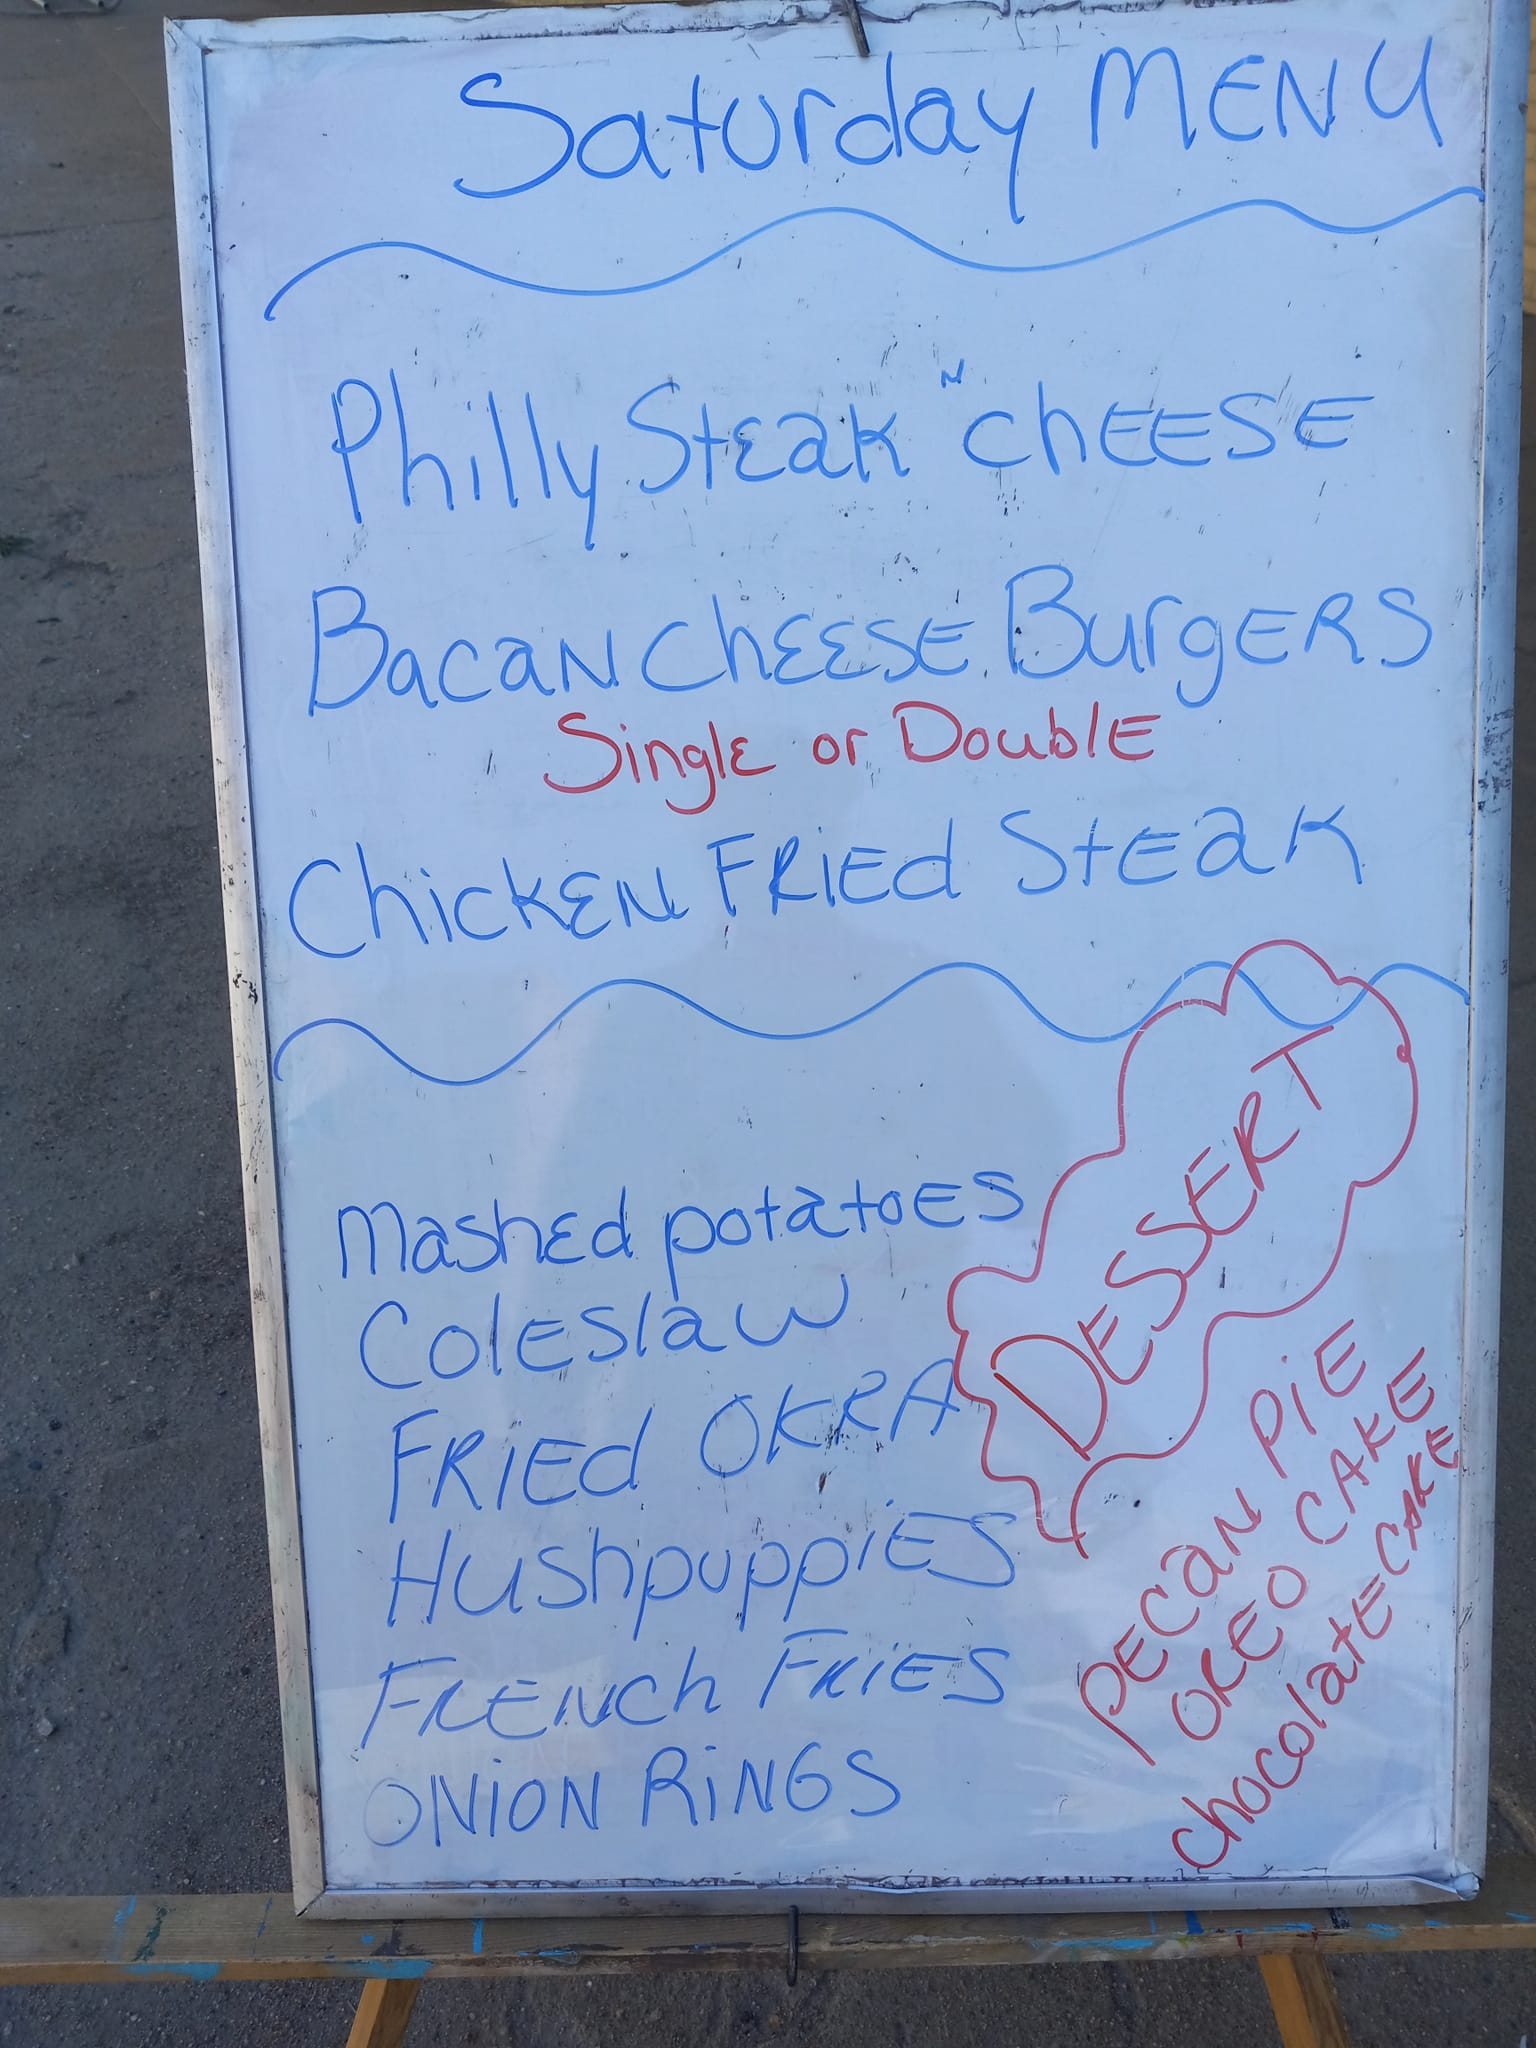 Saturday MENU
Philly Steak "N" chEESE
BacaN chEESE BurgERS
Single or DoublE
ChickEN FRiEd StEak
Mashed potatoes
Coleslaw
FRIEd OKRA
HushpuppiES
FRENch FRiES
ONION RiNGS
DESSERT
PECaN PiE
OREO CAKE
chocolatE CAKE